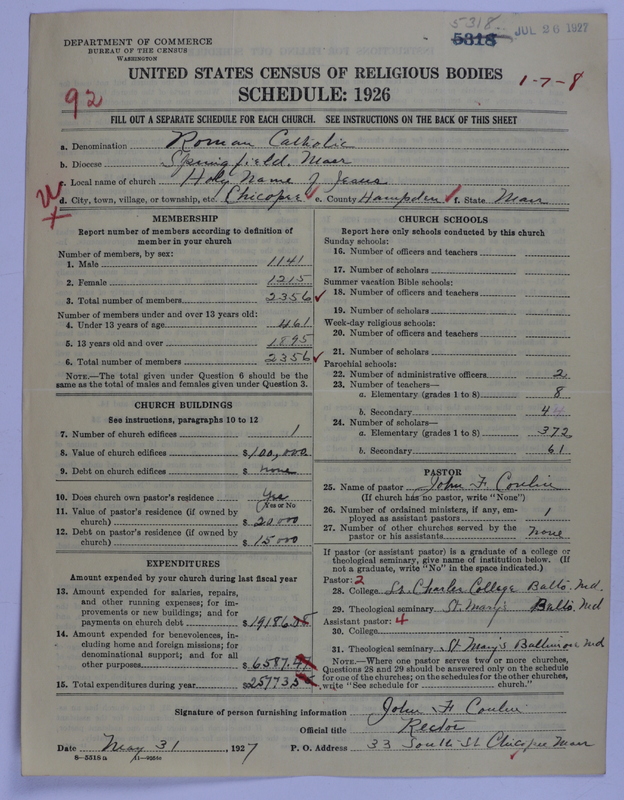 5318
5318 JUL 26 1927
DEPARTMENT OF COMMERCE
BUREAU OF THE CENSUS
WASHINGTON
UNITED STATES CENSUS OF RELIGIOUS BODIES
1-7-8
SCHEDULE: 1926
92
FILL OUT A SEPARATE SCHEDULE FOR EACH CHURCH. SEE INSTRUCTIONS ON THE BACK OF THIS SHEET
a. Denomination Roman Catholic
b. Diocese Springfield. Mass
c. Local name of church Holy Name of Jesus
d. City, town, village, or township, etc. Chicopee e. County Hampden f. State Mass
MEMBERSHIP
Report number of members according to definition of
member in your church
Number of members, by sex:
1. Male 1141
2. Female 1215
3. Total number of members 2356
Number of members under and over 13 years old:
4. Under 13 years of age 461
5. 13 years old and over 1895
6. Total number of members 2356
NOTE.—The total given under Question 6 should be the
same as the total of males and females given under Question 3.
CHURCH BUILDINGS
See instructions, paragraphs 10 to 12
7. Number of church edifices 1
8. Value of church edifices $100,000
9. Debt on church edifices $ none
10. Does church own pastor's residence Yes
(Yes or No)
11. Value of pastor's residence (if owned by
church) $ 20000
12. Debt on pastor's residence (if owned by
church) $ 15000
EXPENDITURES
Amount expended by your church during last fiscal year
13. Amount expended for salaries, repairs,
and other running expenses; for im-
provements or new buildings; and for
payments on church debt $19186.
14. Amount expended for benevolences, in-
cluding home and foreign missions; for
denominational support; and for all
other purposes $6587.
15. Total expenditures during year $25773
CHURCH SCHOOLS
Report here only schools conducted by this church
Sunday schools:
16. Number of officers and teachers
17. Number of scholars
Summer vacation Bible schools:
18. Number of officers and teachers
19. Number of scholars
Week-day religious schools:
20. Number of officers and teachers
21. Number of scholars
Parochial schools:
22. Number of administrative officers 2
23. Number of teachers—
a. Elementary (grades 1 to 8) 8
b. Secondary 4
24. Number of scholars—
a. Elementary (grades 1 to 8) 372
b. Secondary 61
PASTOR
25. Name of pastor John F. Conlin
(If church has no pastor, write "None")
26. Number of ordained ministers, if any, em-
ployed as assistant pastors 1
27. Number of other churches served by the
pastor or his assistants none
If pastor (or assistant pastor) is a graduate of a college or
theological seminary, give name of institution below. (If
not a graduate, write "No" in the space indicated.)
Pastor: 2
28. College St. Charles College Balto. Md.
29. Theological seminary St. Mary's Balto. Md
Assistant pastor: 4
30. College
31. Theological seminary St Mary's Baltimore Md
NOTE.—Where one pastor serves two or more churches,
Questions 28 and 29 should be answered only on the schedule
for one of the churches; on the schedules for the other churches,
write "See schedule for church."
Signature of person furnishing information John F. Conlin
Official title Rector
Date May 31 1927 P. O. Address 33 South St Chicopee Mass
8-5518a 11-9355c